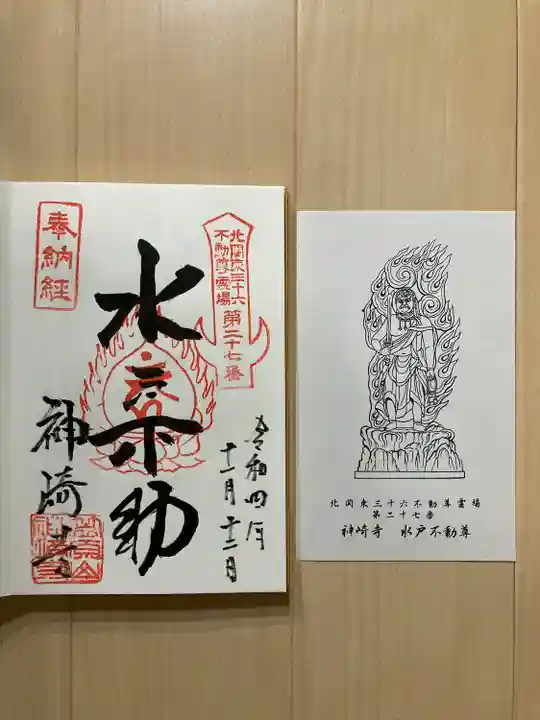 奉納経
北関東三十六
不動尊霊場
第二十七番
水戸不動
令和四年
十一月十二日
神崎寺
北関東三十六不動尊霊場
第二十七番
神崎寺 水戸不動尊